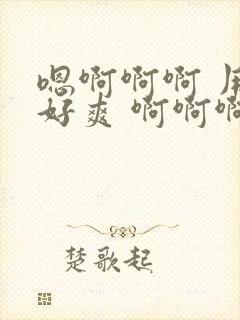 嗯啊啊啊
好爽 啊啊啊
楚歌起